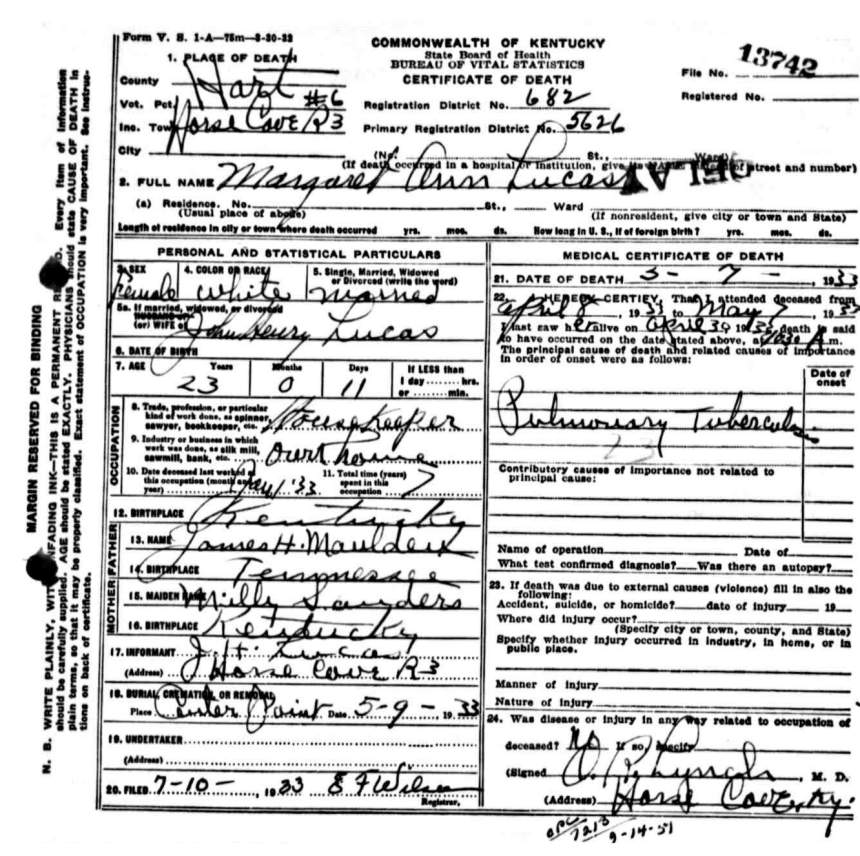 Form V. S. 1-A—75m—8-30-32
COMMONWEALTH OF KENTUCKY
State Board of Health
BUREAU OF VITAL STATISTICS
CERTIFICATE OF DEATH
File No. 13742
Registered No.
1. PLACE OF DEATH
County Hart
Vot. Pct. #6
Registration District No. 682
Inc. Town Horse Cave R3
Primary Registration District No. 5626
City (No. St., Ward)
(If death occurred in a hospital or institution, give its of street and number)
2. FULL NAME Margaret Ann Lucas
(a) Residence. No. St., Ward
(Usual place of abode) (If nonresident, give city or town and State)
Length of residence in city or town where death occurred yrs. mos. ds. How long in U. S., if of foreign birth? yrs. mos. ds.
PERSONAL AND STATISTICAL PARTICULARS
3. SEX Female
4. COLOR OR RACE white
5. Single, Married, Widowed or Divorced (write the word) married
5a. If married, widowed, or divorced
HUSBAND of
(or) WIFE of John Henry Lucas
6. DATE OF BIRTH
7. AGE Years Months Days If LESS than
23 0 11 1 day hrs.
or min.
OCCUPATION
8. Trade, profession, or particular
kind of work done, as spinner,
sawyer, bookkeeper, etc. Housekeeper
9. Industry or business in which
work was done, as silk mill,
sawmill, bank, etc. own home
10. Date deceased last worked at
this occupation (month and
year) Jany '33
11. Total time (years)
spent in this
occupation 7
12. BIRTHPLACE Kentucky
FATHER
13. NAME James H. Mauldein
14. BIRTHPLACE Tennessee
MOTHER
15. MAIDEN NAME Milly Sanders
16. BIRTHPLACE Kentucky
17. INFORMANT J. H. Lucas
(Address) Horse Cave R3
18. BURIAL, CREMATION, OR REMOVAL
Place Center Point Date 5-9-, 1933
19. UNDERTAKER
(Address)
20. FILED 7-10-, 1933 E F Wilson
Registrar.
MEDICAL CERTIFICATE OF DEATH
21. DATE OF DEATH 5-7-, 1933
22. I HEREBY CERTIFY, That I attended deceased from
April 8, 1933 to May 7, 1933
I last saw her alive on April 30 1933, death is said
to have occurred on the date stated above, at m.
The principal cause of death and related causes of importance
in order of onset were as follows:
Date of
onset
Pulmonary Tuberculosis
23
Contributory causes of importance not related to
principal cause:
Name of operation Date of
What test confirmed diagnosis? Was there an autopsy?
23. If death was due to external causes (violence) fill in also the
following:
Accident, suicide, or homicide? date of injury 19
Where did injury occur?
(Specify city or town, county, and State)
Specify whether injury occurred in industry, in home, or in
public place.
Manner of injury
Nature of injury
24. Was disease or injury in any way related to occupation of
deceased? No If so, specify
(Signed) , M. D.
(Address) Horse Cave, Ky.
7213
9-14-51
MARGIN RESERVED FOR BINDING
N. B. WRITE PLAINLY, WITH UNFADING INK—THIS IS A PERMANENT RECORD. Every item of information
should be carefully supplied. AGE should be stated EXACTLY. PHYSICIANS should state CAUSE OF DEATH in
plain terms, so that it may be properly classified. Exact statement of OCCUPATION is very important. See instruc-
tions on back of certificate.